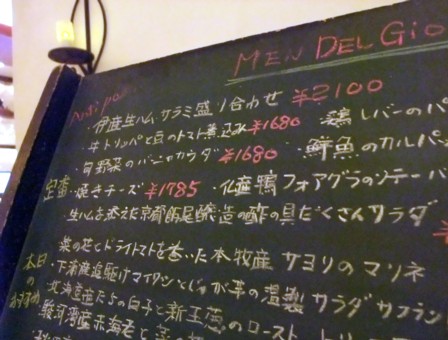 MEN DEL Gio
Antipa
・伊産生ハム、サラミ盛り合わせ ¥2100
・牛トリッパと豆のトマト煮込み ¥1680 ・鶏レバーのパ
・旬野菜のバーニャカウダ ¥1680 ・鮮魚のカルパ
定番・焼きチーズ ¥1785 ・仏産鴨フォアグラのソテー バ
・生ハムを添えた京都飯尾醸造の酢の具だくさんサラダ
本日のおすすめ
・菜の花とドライトマトを巻いた本牧産サヨリのマリネ
・下浦産追駆けマイワシとじゃが芋の温製サラダ サフラン
・北海産たらの白子と新玉葱のロースト
・駿河湾産赤海老と